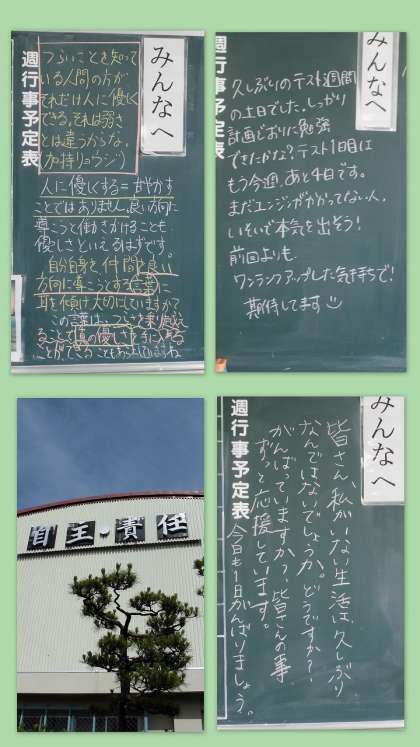 みんなへ
週行事予定表
つらいことを知って
いる人間の方が
それだけ人に優しく
できる。それは弱さ
とは違うからな。
(加持リョウジ)
人に優しくする=甘やかす
ことではありません。良い方向に
導こうと働きかけることも
優しさといえるはずです。
自分自身を仲間を良い
方向に導こうとする言葉に
耳を傾け大切にしていますか?
この言葉は、つらさを乗り越え
ることで真の優しさを手に入れる
ことができることもあらわしていますね
みんなへ
週行事予定表
久しぶりのテスト週間
の土日でした。しっかり
計画どおりに勉強
できたかな?テスト1日目は
もう今週。あと4日です。
まだエンジンがかかってない人、
いそいで本気を出そう!
前回よりも
ワンランクアップした気持ちで!
期待してます
自主・責任
みんなへ
週行事予定表
皆さん、私がいない生活は、久しぶり
なんではないでしょうか。どうですか?
がんばっていますか?皆さんの事、
ずっと応援しています。
今日も1日がんばりましょう。